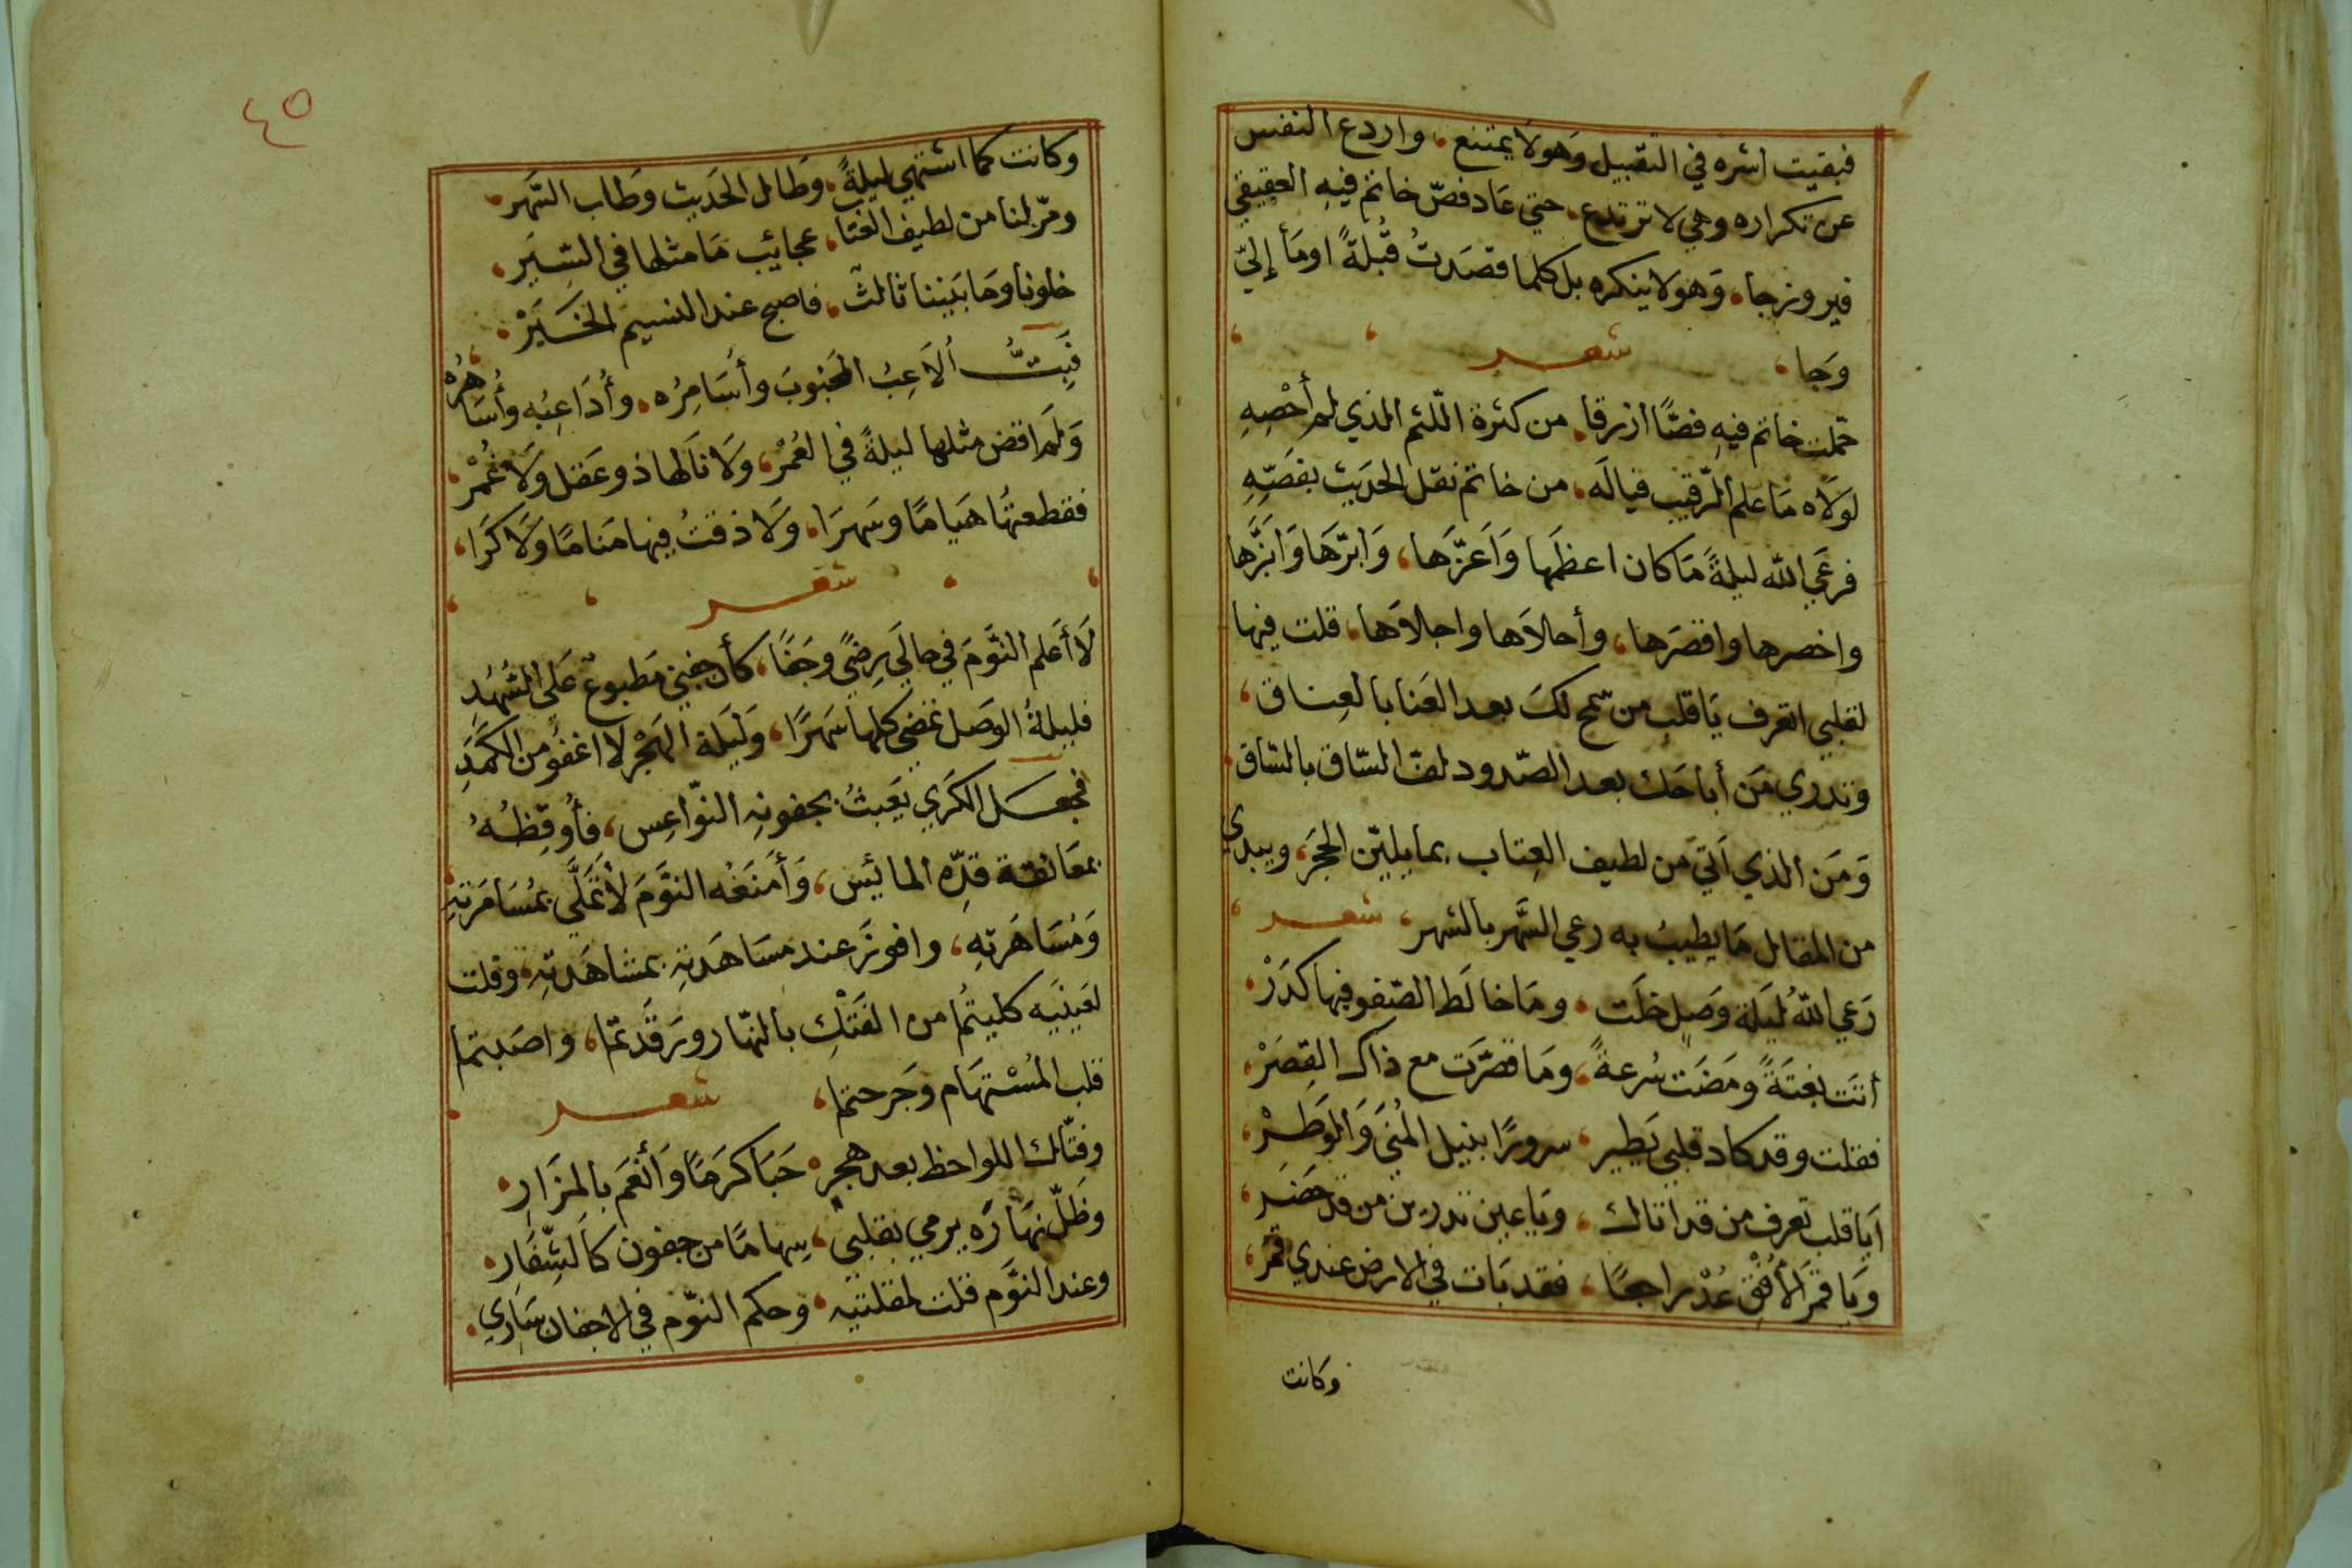 فبقيت اشره في التقبيل وَهو لا يمتنع، واردع النفس
عن تكراره وهي لا ترتدع، حتي عَاد فصّ خاتم فيهِ العقيقي
فيروزجا، وَهو لا ينكره بل كلما قصَدتُ قُبلةً اومَأ إليّ
وَجا، شعر
حملت خاتم فيهِ فصًّا ازرقا، من كثرة اللّثم الذي لم أُحْصِهِ
لولاه مَا علم الرّقيب فيالَه، من خاتم نقل الحَديث بفصّهِ
فرعَي الله ليلةً مَا كان اعظمها وَاَعزّها، وَابرّهَا وَابَزّها
واخصرها واقصَرها، وأحلاَها واجلاَها، قلت فيها
لقلبي اتعرف يَا قلب من سمح لكَ بعد العَنا بالعِناق،
وتدري مَن أباحَك بعد الصّدود لفّ السّاق بالسّاق
وَمَن الذي اَتيَ من لطيف العِتاب بما يليّن الحجَر، ويبدي
من المقال مَا يطيبُ به رعي السَّهر بالشهر، شعر
رَعي اللهُ ليَلة وَصلٍ خلَت، ومَا خالَط الصّفو فيها كدَرْ
أتَت بغتَةً ومَضَت سُرعةً، ومَا قصَّرَت مع ذاك القِصَرْ
فقلت وقد كاد قلبي يَطير، سرورًا بنيل المُنَي وَالوَطَرْ
اَيَا قلب تعرف من قد اتاك، ويَا عين تدرين من قد حضَر
وَيَا قمَرَ الأُفْقِ عُدْ راجعًا، فقد بَات في الارض عندي قمَر
وكانت
٤٥
وكانت كما اشتهي ليلةً، وَطال الحَديث وطَاب السّهَر
ومرّ لنا من لطيف الغنا، عجائب مَا مثلها في السّيَر
خلونا ومَا بَيننا ثالث، فاصبح عند النسيم الخَبَرْ
فَبِتُّ اُلاَعِبُ المحَبُوبَ وأسَامِرُه، وأُدَاعِبُه وأُسَاهِرُه
وَلم اقض مثلها ليلةً في العُمْرِ، وَلاَ نالَها ذو عَقل وَلاَ غُمْرِ
فقطعتهَا هيَامًا وسَهرَا، وَلاَ ذقتُ فيها مَنامًا وَلاَ كَرَا،
شعر
لاَ أَعلم النَّومَ في حالَي رِضًي وجَفًا، كأن جفني مَطبوعٌ عَلي السُّهُدِ
فليلةُ الوَصل تمضي كلها سَهرًا، وَليَلة الهَجْر لا اغفُو من الكَمَدِ
فجعَل الكَرَي يَعبثُ بجفونهِ النّواعِس، فأُوقِظهُ
بمعَانقة قدِّه المائِس، وَأَمنَعُه النَّومَ لأَتمَلَّي بمُسَامَرَتهِ
وَمُسَاهَرتهِ، وافوزَ عند مسَاهَدتهِ بمشاهَدتهِ، وقلت
لعَينَيه كليتُما من الفَتْكِ بالنّهار ورَقَدتما، واصَبتما
قلب المُسْتهَام وجَرحتما، شعر
وفتّاك اللواحظ بعد هجر، حَبَا كرَمًا وَأنعَم بالمَزَارِ
وظَلّ نهَارَه يرمي بقلبي، سِهامًا من جفون كالشِّفَارِ
وعند النَّوم قلت لمقلتيه، وحكم النّوم في الاجفان سَارِي